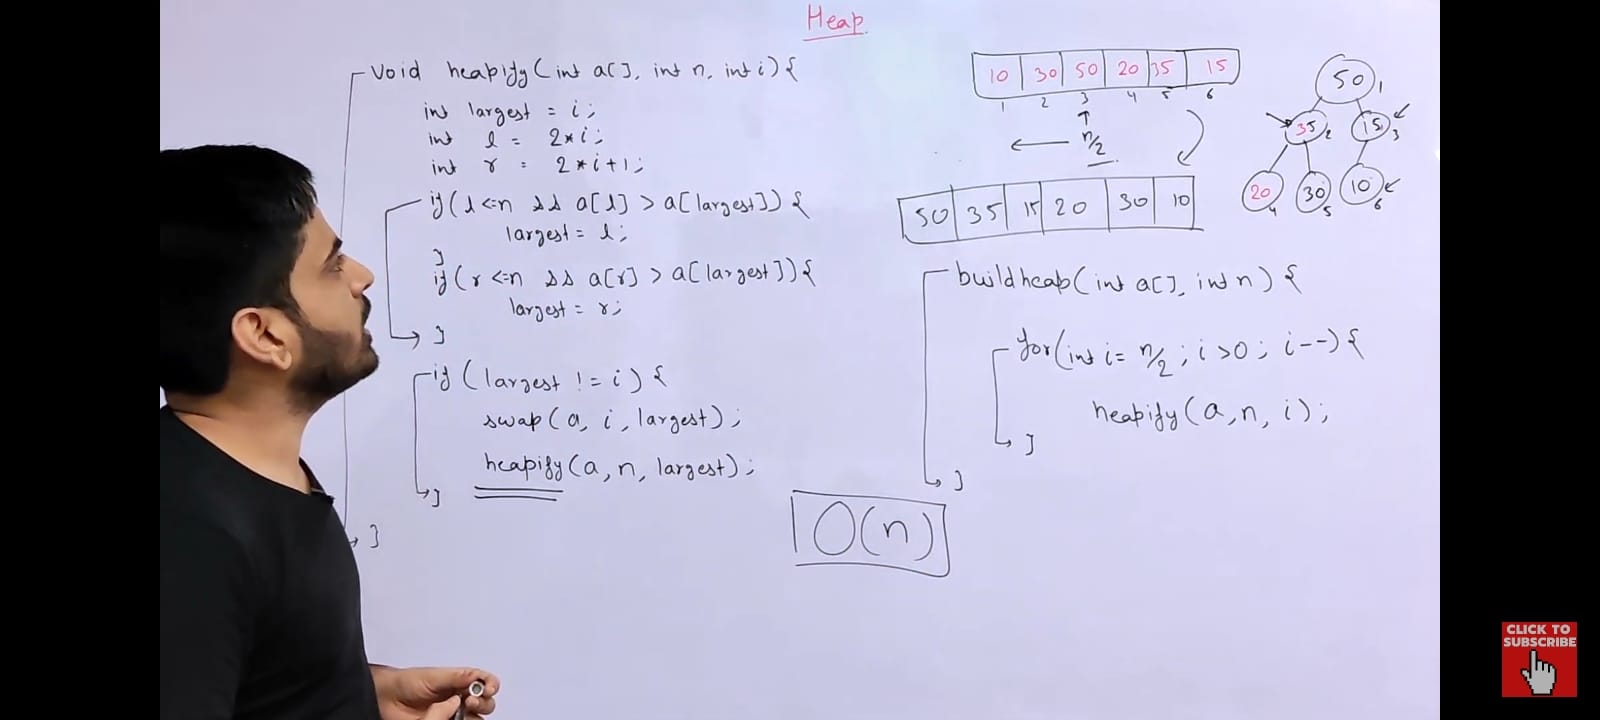 Heap
void heapify(int a[], int n, int i){
int largest = i;
int l = 2*i;
int r = 2*i+1;
if(l<=n && a[l] > a[largest]) {
largest = l;
}
if(r<=n && a[r] > a[largest]){
largest = r;
}
if(largest != i){
swap(a, i, largest);
heapify(a, n, largest);
}
}
10 30 50 20 35 15
1 2 3 4 5 6
n/2
50 35 15 20 30 10
50 1
35 2 15 3
20 4 30 5 10 6
buildheap(int a[], int n) {
for(int i= n/2; i>0; i--){
heapify(a,n,i);
}
}
O(n)
CLICK TO
SUBSCRIBE